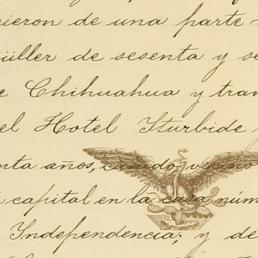 ieron de una parte
üller de sesenta y se
e Chihuahua y tran
el Hotel Iturbide
nta años, casado, vecino
capital en la casa núm
Independencia; y de